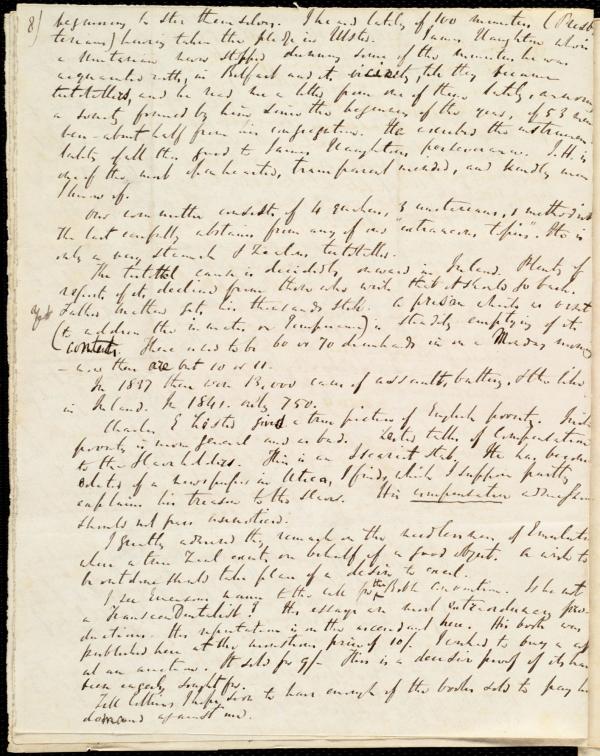 8/ beginning to stir themselves. I heard lately of 100 ministers (Presby
terians) having taken the pledge in Ulster. James Haughton who is
a Unitarian never stopped dunning some of the ministers he was
acquainted with, in Belfast and its vicinity, till they became
teetotallers, and he read me a letter from one of them lately, announcing
a society formed by him since the beginning of the year, of 53 mem
bers - about half from his congregation. He ascribed the instrumen
tality of all this good to James Haughton's perseverance. J.H. is
one of the most openhearted, transparent minded, and kindly men
I know of.
Our committee consists of 4 quakers, 3 unitarians, 1 methodist
The last carefully abstains from any of our "extraneous topics". He is
only a very staunch & zealous teetotaller.
The teetotal cause is decidedly onward in Ireland. Plenty of
reports of its decline from those who wish that it should go back.
Father Mathew gets his thousands still. A prison which we visit
(to address the inmates on Temperance) is steadily emptying of its
contents. There used to be 60 or 70 drunkards in on a Monday morning
- now there are but 10 or 11.
In 1837 there were 13,000 cases of assaults, battery, & the like
in Ireland. In 1841 only 750.
Charles E Lester gives a true picture of English poverty. Irish
poverty is more general and as bad. Lester talks of Compensation
to the Slaveholders. This is an Iscariot stab. He has become
editor of a newspaper in Utica, I find, which I suppose partly
explains his treason to the slaves. His compensation
should not pass unnoticed.
I greatly admired thy remark on the needlessness of Emulation
when a true zeal exists on behalf of a good object. A wish to
be outdone should take place of a desire to excel.
I see Emersons name to the call for the Bible Convention. Is he not
a Transcendentalist? His essays are most extraordinary pro-
ductions. His reputation is on the ascendant here. His book was
published here at the monstrous price of 10/. I wished to buy a copy
at an auction. It sold for 9/- This is a decisive proof of its having
been eagerly sought for.
Tell Collins I hope soon to have enough of the books sold to pay his
demand against me.